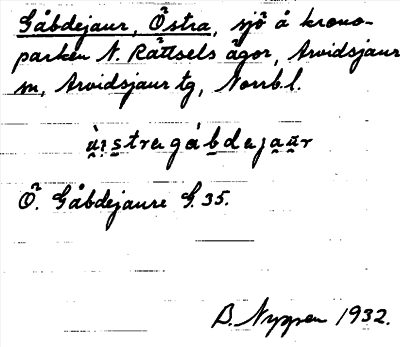 Gåbdejaur, Östra, sjö å krono-
parken N. Rättsels ägor, Arvidsjaur
sn, Arvidsjaur tg, Norrb. l.
Ö. Gåbdejaure G. 35.
B. Nyman 1932.